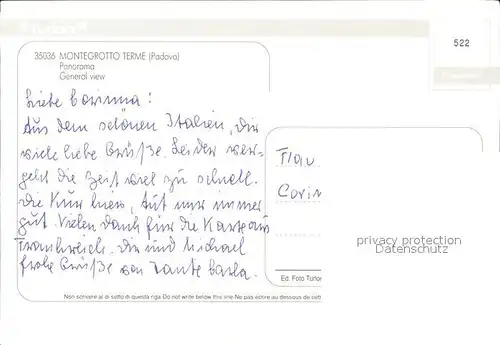 522
35036 MONTEGROTTO TERME (Padova)
Panorama
General view
Liebe Corinna:
Aus dem schönen Italien, Dir
viele liebe Grüße. Leider ver-
geht die Zeit viel zu schnell.
Die Kur hier, tut mir immer
gut. Vielen Dank für die Karte aus
Frankreich. Dir und Michael
frohe Grüße von Tante Carla.
Frau
Corin
privacy protection
Datenschutz
Ed. Foto Turlon
Non scrivere al di sotto di questa riga Do not write below this line-Ne pas écrire au dessous de cette